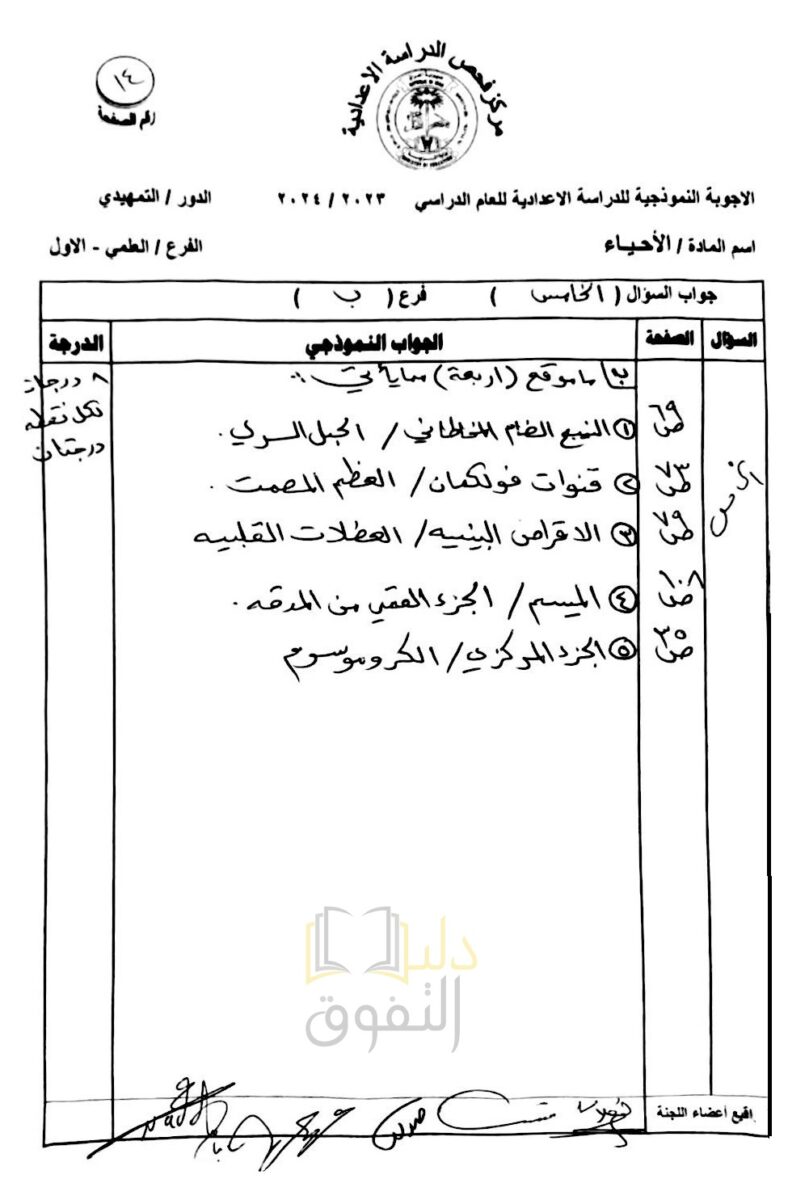 مركز فحص الدراسة الاعدادية
١٤
رقم الصفحة
الاجوبة النموذجية للدراسة الاعدادية للعام الدراسي ٢٠٢٣ / ٢٠٢٤ الدور / التمهيدي
اسم المادة / الأحياء الفرع / العلمي - الاول
جواب السؤال ( الخامس ) فرع ( ب )
السؤال الصفحة الجواب النموذجي الدرجة
ب/ ما موقع (اربعة) مما يأتي :. ٨ درجات
لكل نقطة
درجتان
ص٦٩ ① النسيج الضام المخاطي / الحبل السري .
ص٧٣ ② قنوات فولكمان / العظم المصمت .
ص٧٩ ③ الاقراص البينيه / العضلات القلبيه
ص١٠٨ ④ الميسم / الجزء القمي من المدقه .
ص٣٥ ⑤ الجزء المركزي / الكروموسوم
دليل
التفوق
أعضاء اللجنة